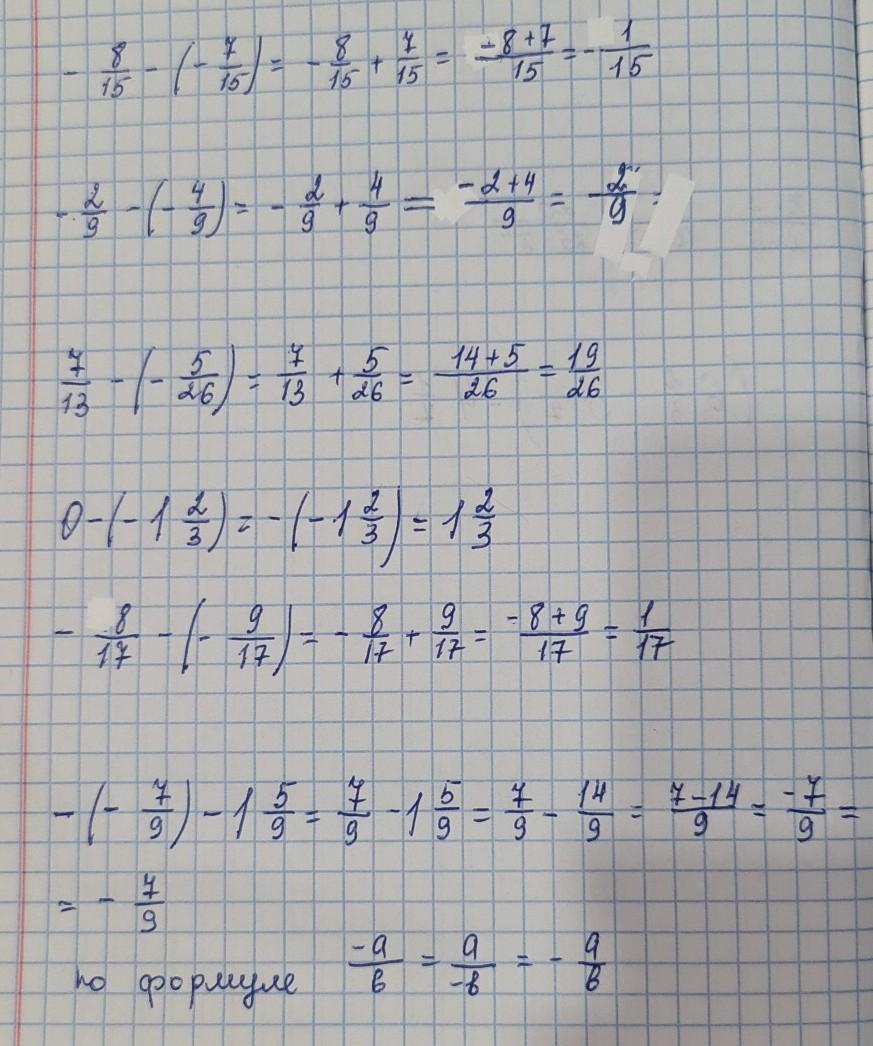 - 8/15 - (- 7/15) = - 8/15 + 7/15 = -8+7/15 = - 1/15
- 2/9 - (- 4/9) = - 2/9 + 4/9 = -2+4/9 = - 2/9 =
7/13 - (- 5/26) = 7/13 + 5/26 = 14+5/26 = 19/26
0 - (- 1 2/3) = - (- 1 2/3) = 1 2/3
- 8/17 - (- 9/17) = - 8/17 + 9/17 = -8+9/17 = 1/17
- (- 7/9) - 1 5/9 = 7/9 - 1 5/9 = 7/9 - 14/9 = 7-14/9 = -7/9 =
= - 7/9
по формуле -a/b = a/-b = - a/b